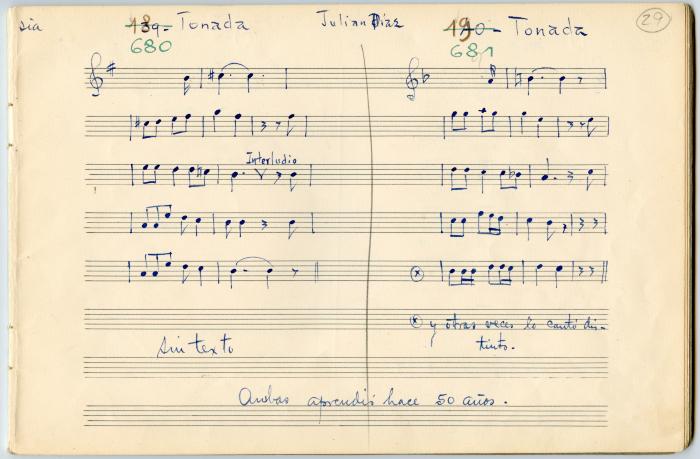 sia
18 39- Tonada
680
Julian Díaz
19 40- Tonada
681
29
Interludio
⊗
⊗ y otras veces lo cantó dis-
tinto.
sin texto
Ambas aprendió hace 50 años.